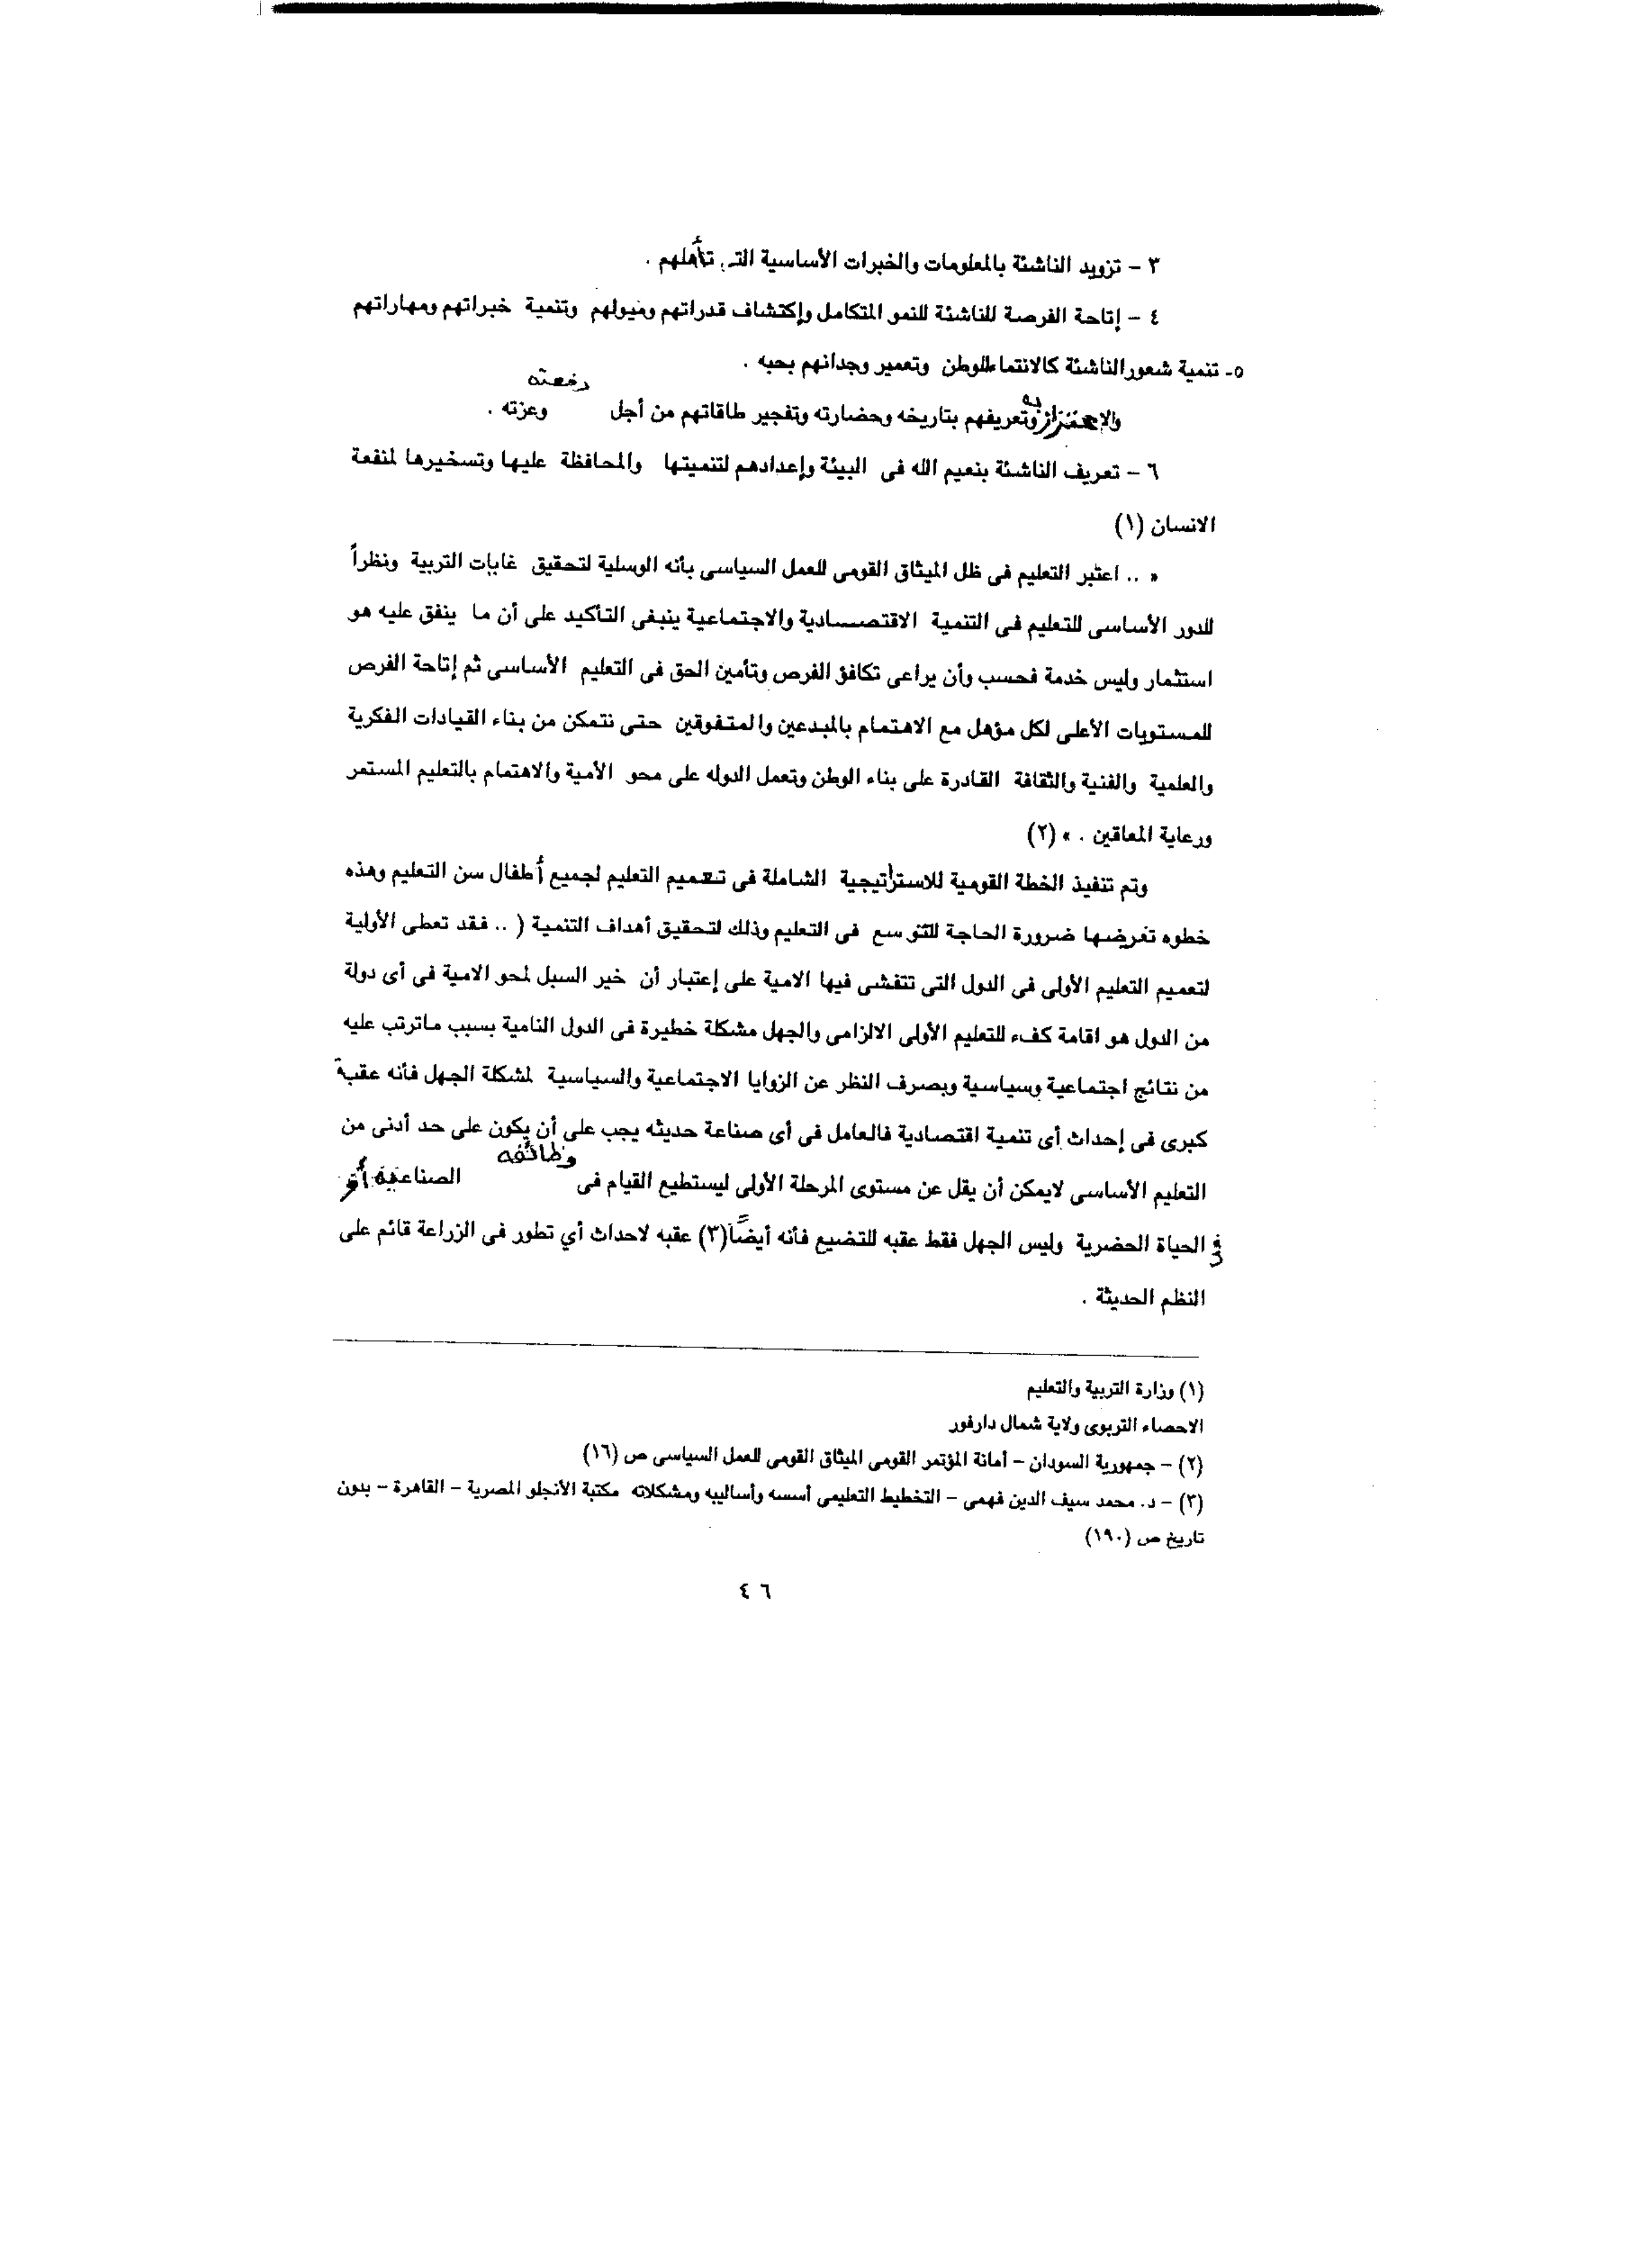 ٣ - تزويد الناشئة بالمعلومات والخبرات الأساسية التى تأهلهم .
٤ - إتاحة الفرصة للناشئة للنمو المتكامل وإكتشاف قدراتهم وميولهم وتنمية خبراتهم ومهاراتهم
٥- تنمية شعور الناشئة كالانتماء للوطن وتعمير وجدانهم بحبه .
والإعتزاز به وتعريفهم بتاريخه وحضارته وتفجير طاقاتهم من أجل رفعته وعزته .
٦ - تعريف الناشئة بنعيم الله فى البيئة وإعدادهم لتنميتها والمحافظة عليها وتسخيرها لمنفعة
الانسان (١)
« .. اعتبر التعليم فى ظل الميثاق القومى للعمل السياسى بأنه الوسلية لتحقيق غايات التربية ونظراً
للدور الأساسى للتعليم فى التنمية الاقتصادية والاجتماعية ينبغى التأكيد على أن ما ينفق عليه هو
استثمار وليس خدمة فحسب وأن يراعى تكافؤ الفرص وتأمين الحق فى التعليم الأساسى ثم إتاحة الفرص
للمستويات الأعلى لكل مؤهل مع الاهتمام بالمبدعين والمتفوقين حتى نتمكن من بناء القيادات الفكرية
والعلمية والفنية والثقافة القادرة على بناء الوطن وتعمل الدوله على محو الأمية والاهتمام بالتعليم المستمر
ورعاية المعاقين . » (٢)
وتم تنفيذ الخطة القومية للاستراتيجية الشاملة فى تعميم التعليم لجميع أطفال سن التعليم وهذه
خطوه تفرضها ضرورة الحاجة للتوسع فى التعليم وذلك لتحقيق أهداف التنمية ( .. فقد تعطى الأولية
لتعميم التعليم الأولى فى الدول التى تتفشى فيها الامية على إعتبار أن خير السبل لمحو الامية فى أى دولة
من الدول هو اقامة كفء للتعليم الأولى الالزامى والجهل مشكلة خطيرة فى الدول النامية بسبب ماترتب عليه
من نتائج اجتماعية وسياسية وبصرف النظر عن الزوايا الاجتماعية والسياسية لمشكلة الجهل فأنه عقبة
كبرى فى إحداث أى تنمية اقتصادية فالعامل فى أى صناعة حديثه يجب على أن يكون على حد أدنى من
التعليم الأساسى لايمكن أن يقل عن مستوى المرحلة الأولى ليستطيع القيام فى وظائفه الصناعية أو
فى الحياة الحضرية وليس الجهل فقط عقبه للتضيع فأنه أيضاً (٣) عقبه لاحداث أي تطور فى الزراعة قائم على
النظم الحديثة .
(١) وزارة التربية والتعليم
الاحصاء التربوى ولاية شمال دارفور
(٢) - جمهورية السودان - أمانة المؤتمر القومى الميثاق القومى للعمل السياسى ص (١٦)
(٣) - د. محمد سيف الدين فهمى - التخطيط التعليمى أسسه وأساليبه ومشكلاته مكتبة الأنجلو المصرية - القاهرة - بدون
تاريخ ص (١٩٠)
٤٦